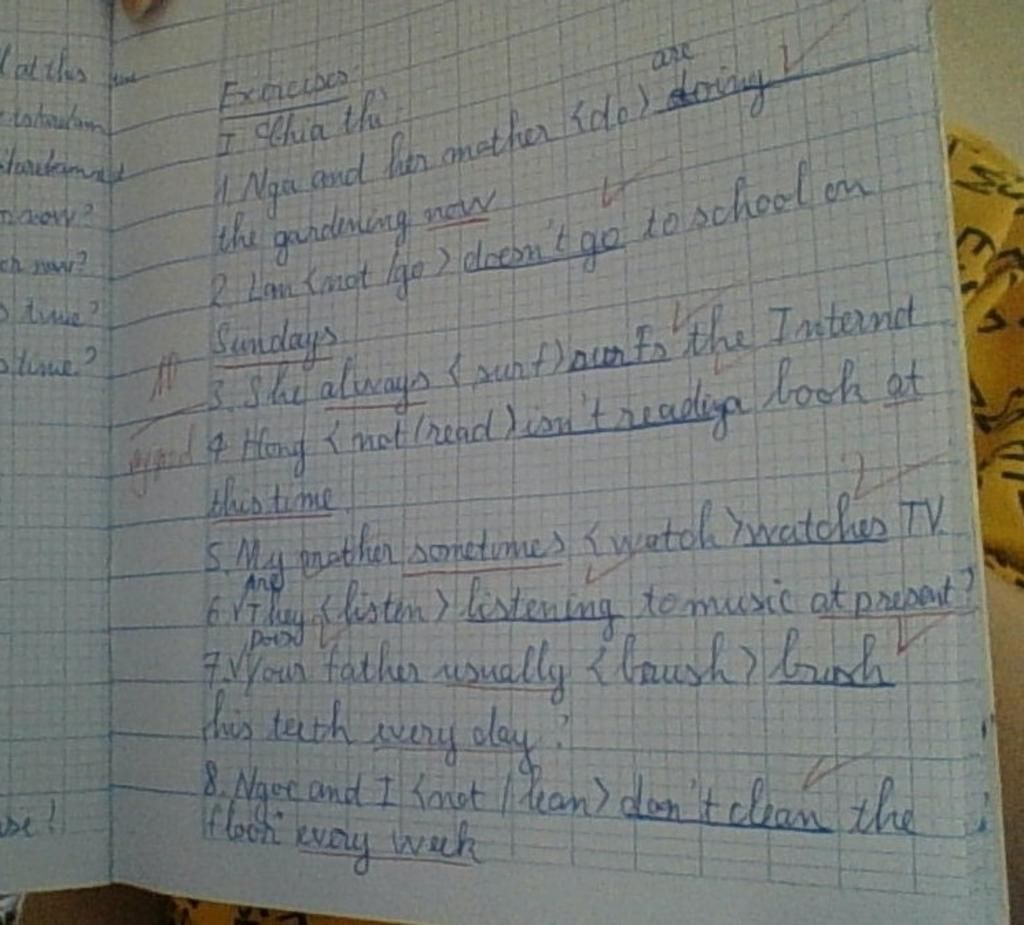 at this
now?
now?
time?
time?
Exercises
I Chia thì
are
1. Nga and her mother <do> doing
the gardening now
2 Lan <not /go> doesn't go to school on
Sundays
3. She always <surf> surfs the Internet
good 4 Hong <not/read> isn't reading a book at
this time
5. My mother sometimes <watch> watches TV.
Are
6. √They <listen> listening to music at present?
Does
7. √Your father usually <brush> brush
his teeth every day?
8. Ngoc and I <not /clean> don't clean the
floor every week